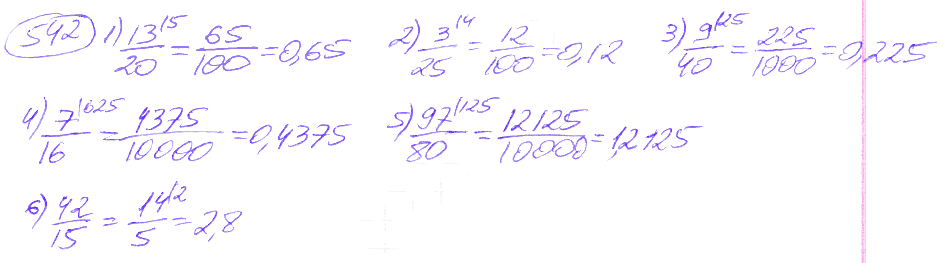 542 1) 13/20 |5 = 65/100 = 0,65 2) 3/25 |4 = 12/100 = 0,12 3) 9/40 |25 = 225/1000 = 0,225
4) 7/16 |625 = 4375/10000 = 0,4375 5) 97/80 |125 = 12125/10000 = 1,2125
6) 42/15 = 14/5 |2 = 2,8